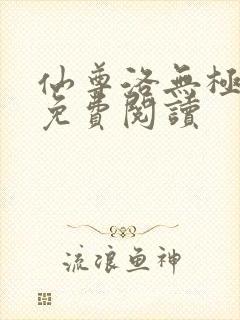 仙尊洛無極
免費閱讀
流浪鱼神